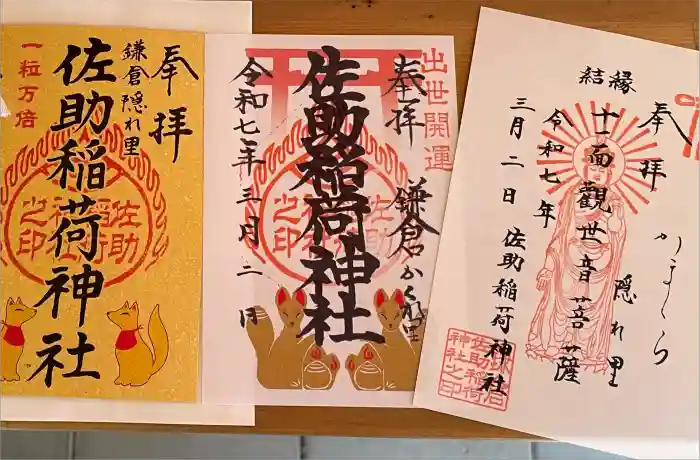 奉拝
鎌倉隠れ里
佐助稲荷神社
一粒万倍
佐助
稲荷
之印
出世開運
奉拝
鎌倉かくれ里
佐助稲荷神社
令和七年三月二日
佐助
稲荷
之印
奉拝
かまくら
隠れ里
結縁
十一面観世音菩薩
令和七年
三月二日
佐助稲荷神社
佐助稲荷
神社之印